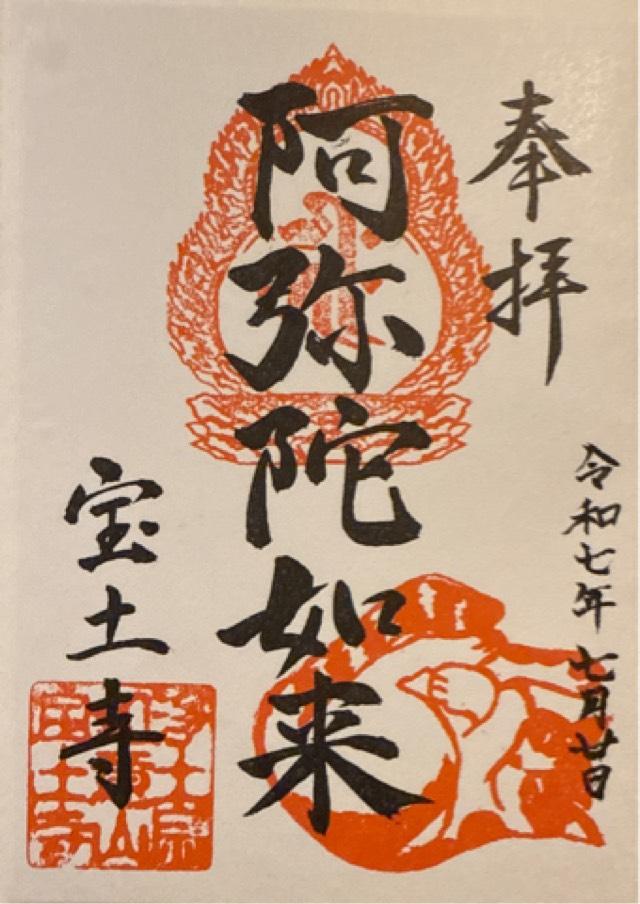 奉拝
令和七年七月廿日
阿弥陀如来
宝土寺